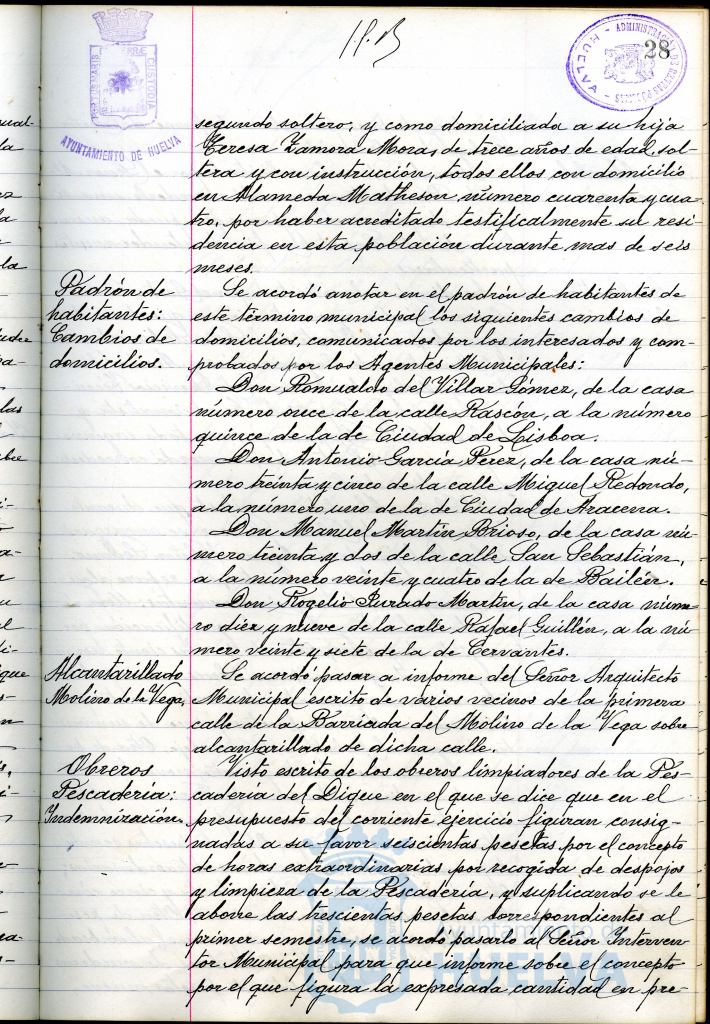 28
PORTUS MARIS ET TERRAE CUSTODIA
AYUNTAMIENTO DE HUELVA
ADMINISTRACIÓN DE RENTAS PÚBLICAS - HUELVA -
segundo soltero; y como domiciliada a su hija
Teresa Zamora Mora, de trece años de edad, sol-
tera y con instrucción, todos ellos con domicilio
en Alameda Matheson número cuarenta y cua-
tro, por haber acreditado testificalmente su resi-
dencia en esta población durante mas de seis
meses.
Padrón de
habitantes:
Cambios de
domicilios.
Se acordó anotar en el padrón de habitantes de
este término municipal los siguientes cambios de
domicilios, comunicados por los interesados y com-
probados por los Agentes Municipales:
Don Romualdo del Villar Gómez, de la casa
número once de la calle Rascón, a la número
quince de la de Ciudad de Lisboa.
Don Antonio García Pérez, de la casa nú-
mero treinta y cinco de la calle Miguel Redondo,
a la número uno de la de Ciudad de Aracena.
Don Manuel Martín Brioso, de la casa nú-
mero treinta y dos de la calle San Sebastián,
a la número veinte y cuatro de la de Bailén.
Don Rogelio Jurado Martín, de la casa núme-
ro diez y nueve de la calle Rafael Guillén, a la nú-
mero veinte y siete de la de Cervantes.
Alcantarillado
Molino de la Vega.
Se acordó pasar a informe del Señor Arquitecto
Municipal escrito de varios vecinos de la primera
calle de la Barriada del Molino de la Vega sobre
alcantarillado de dicha calle.
Obreros
Pescadería:
Indemnización.
Visto escrito de los obreros limpiadores de la Pes-
cadería del Dique en el que se dice que en el
presupuesto del corriente ejercicio figuran consig-
nadas a su favor seiscientas pesetas por el concepto
de horas extraordinarias por recogida de despojos
y limpieza de la Pescadería, y suplicando se le
abone las trescientas pesetas correspondientes al
primer semestre, se acordó pasarlo al Señor Interven-
tor Municipal para que informe sobre el concepto
por el que figura la expresada cantidad en pre-
Ayuntamiento de
HUELVA